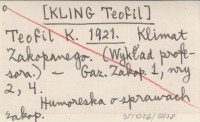 [KLING Teofil]
Teofil K. 1921. Klimat
Zakopanego. (Wykład profe-
sora.) — Gaz. Zakop. 1, nry
2, 4.
Humoreska o sprawach
zakop.